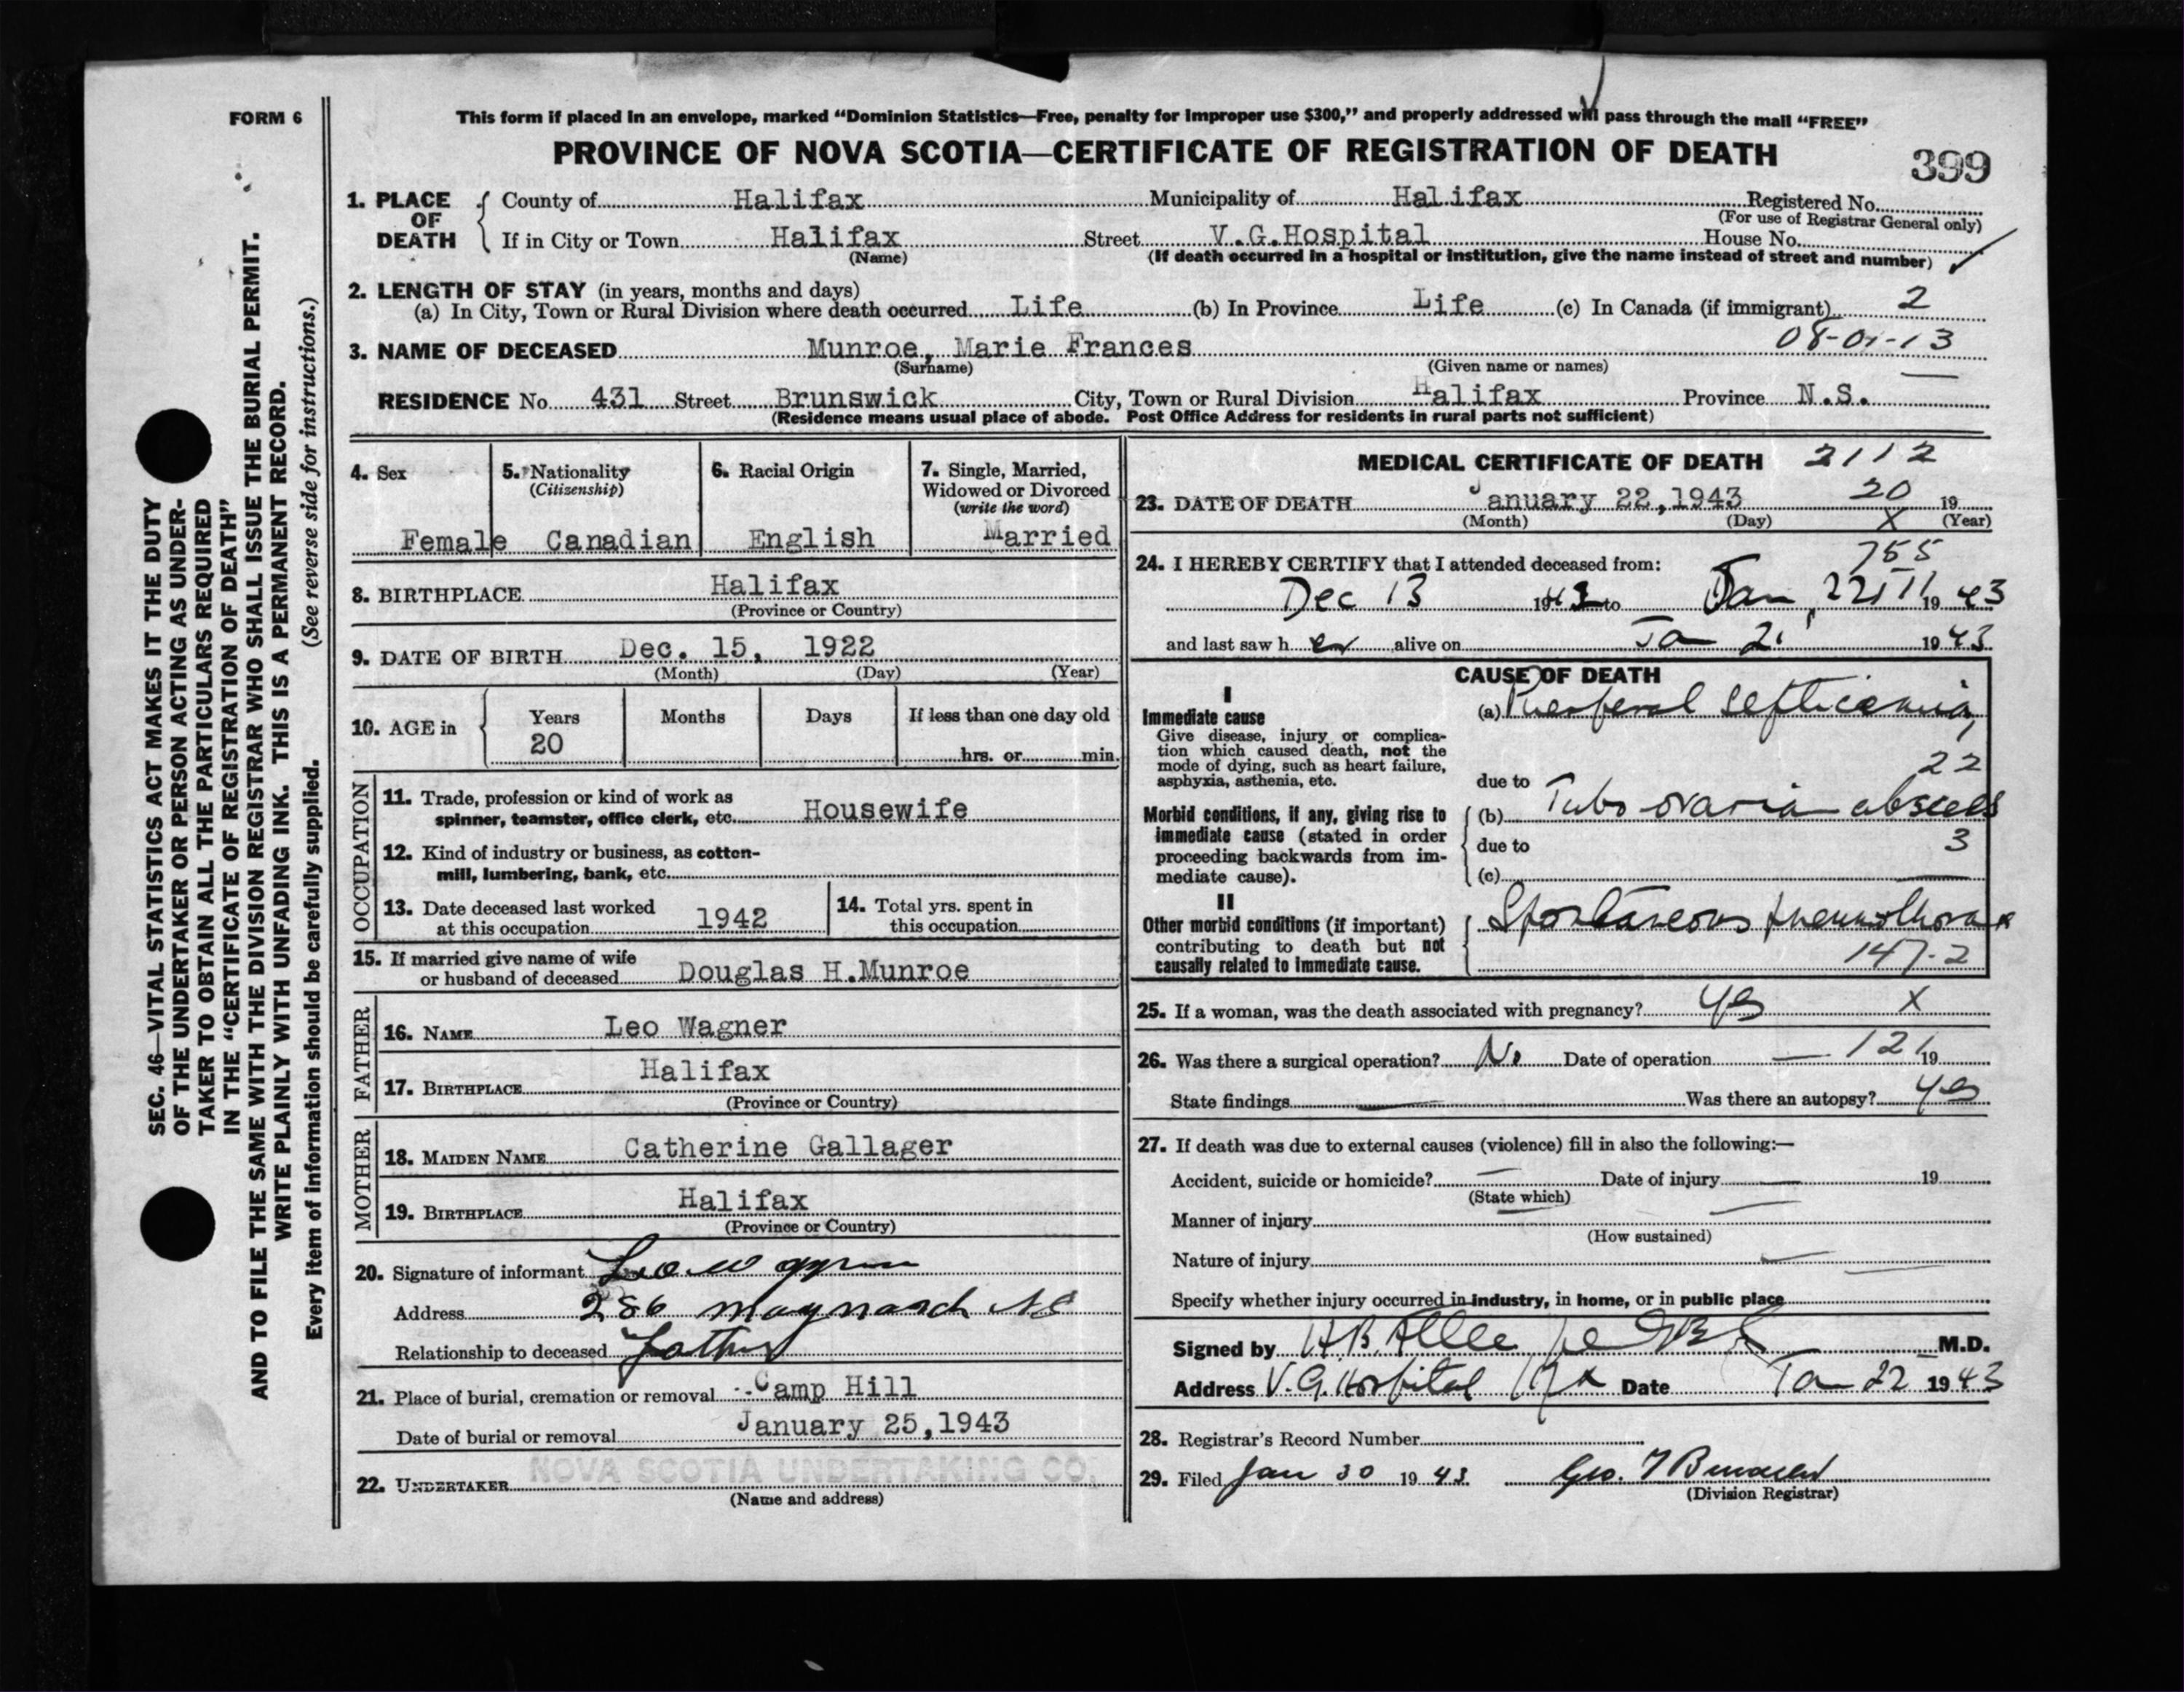 FORM 6
This form if placed in an envelope, marked "Dominion Statistics—Free, penalty for improper use $300," and properly addressed will pass through the mail "FREE"
PROVINCE OF NOVA SCOTIA—CERTIFICATE OF REGISTRATION OF DEATH
399
1. PLACE OF DEATH
County of Halifax Municipality of Halifax Registered No.
(For use of Registrar General only)
If in City or Town Halifax Street V.G.Hospital House No.
(Name) (If death occurred in a hospital or institution, give the name instead of street and number)
2. LENGTH OF STAY (in years, months and days)
(a) In City, Town or Rural Division where death occurred Life (b) In Province Life (c) In Canada (if immigrant) 2
3. NAME OF DECEASED Munroe, Marie Frances 08-01-13
(Surname) (Given name or names)
RESIDENCE No. 431 Street Brunswick City, Town or Rural Division Halifax Province N.S.
(Residence means usual place of abode. Post Office Address for residents in rural parts not sufficient)
4. Sex
Female
5. Nationality
(Citizenship)
Canadian
6. Racial Origin
English
7. Single, Married,
Widowed or Divorced
(write the word)
Married
8. BIRTHPLACE Halifax
(Province or Country)
9. DATE OF BIRTH Dec. 15, 1922
(Month) (Day) (Year)
10. AGE in Years Months Days If less than one day old
20 hrs. or min.
OCCUPATION
11. Trade, profession or kind of work as
spinner, teamster, office clerk, etc. Housewife
12. Kind of industry or business, as cotton-
mill, lumbering, bank, etc.
13. Date deceased last worked
at this occupation 1942
14. Total yrs. spent in
this occupation
15. If married give name of wife
or husband of deceased Douglas H.Munroe
FATHER
16. NAME Leo Wagner
17. BIRTHPLACE Halifax
(Province or Country)
MOTHER
18. MAIDEN NAME Catherine Gallager
19. BIRTHPLACE Halifax
(Province or Country)
20. Signature of informant Leo
Address 286 Maynard St
Relationship to deceased Father
21. Place of burial, cremation or removal Camp Hill
Date of burial or removal January 25,1943
22. UNDERTAKER NOVA SCOTIA UNDERTAKING CO.
(Name and address)
MEDICAL CERTIFICATE OF DEATH 2112
23. DATE OF DEATH January 22,1943 20 19
(Month) (Day) X (Year)
24. I HEREBY CERTIFY that I attended deceased from: 755
Dec 13 19 to Jan 22 19 43
and last saw her alive on Ja 21 1943
CAUSE OF DEATH
I
Immediate cause
Give disease, injury or complica-
tion which caused death, not the
mode of dying, such as heart failure,
asphyxia, asthenia, etc.
(a) Puerperal septicemia,
22
due to
Morbid conditions, if any, giving rise to
immediate cause (stated in order
proceeding backwards from im-
mediate cause).
(b) Tubo ovarian abscess
due to 3
(c)
II
Other morbid conditions (if important)
contributing to death but not
causally related to immediate cause.
Spontaneous pneumothorax
147-2
25. If a woman, was the death associated with pregnancy? yes X
26. Was there a surgical operation? No Date of operation — 121 19
State findings — Was there an autopsy? yes
27. If death was due to external causes (violence) fill in also the following:—
Accident, suicide or homicide? — Date of injury — 19
(State which)
Manner of injury
(How sustained)
Nature of injury —
Specify whether injury occurred in industry, in home, or in public place
Signed by H.B. M.D.
Address V.G. Hospital Hfx Date Jan 22 1943
28. Registrar's Record Number
29. Filed Jan 30 1943 Geo.
(Division Registrar)
SEC. 46—VITAL STATISTICS ACT MAKES IT THE DUTY
OF THE UNDERTAKER OR PERSON ACTING AS UNDER-
TAKER TO OBTAIN ALL THE PARTICULARS REQUIRED
IN THE "CERTIFICATE OF REGISTRATION OF DEATH"
AND TO FILE THE SAME WITH THE DIVISION REGISTRAR WHO SHALL ISSUE THE BURIAL PERMIT.
WRITE PLAINLY WITH UNFADING INK. THIS IS A PERMANENT RECORD.
Every item of information should be carefully supplied. (See reverse side for instructions.)